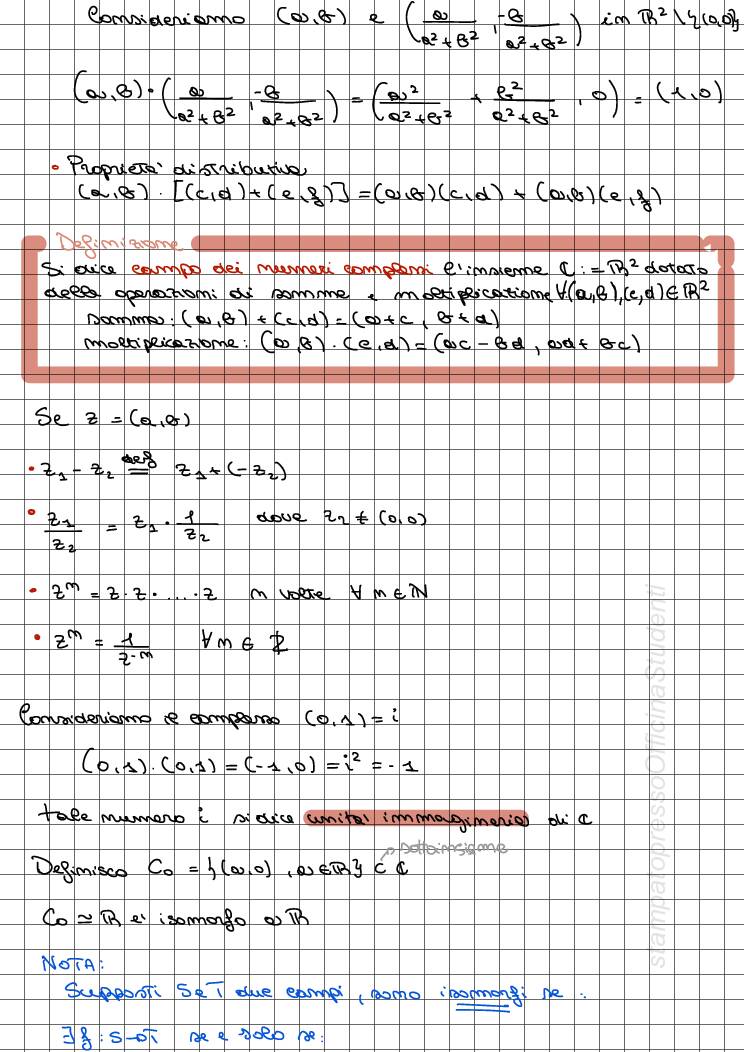 Consideriamo (a,b) e (a/(a²+b²), -b/(a²+b²)) in ℝ²\{(0,0)}
(a,b)·(a/(a²+b²), -b/(a²+b²)) = (a²/(a²+b²) + b²/(a²+b²), 0) = (1,0)
• Proprietà distributiva
(a,b)·[(c,d)+(e,f)] = (a,b)(c,d) + (a,b)(e,f)
Definizione
Si dice campo dei numeri complessi l'insieme ℂ := ℝ² dotato
delle operazioni di somma e moltiplicazione ∀(a,b),(c,d) ∈ ℝ²
somma: (a,b)+(c,d)=(a+c, b+d)
moltiplicazione: (a,b)·(c,d)=(ac-bd, ad+bc)
Se z = (a,b)
• z₁ - z₂ def= z₁+(-z₂)
• z₁/z₂ = z₁ · 1/z₂ dove z₂ ≠ (0,0)
• zⁿ = z·z·....·z n volte ∀ n ∈ ℕ
• zⁿ = 1/z⁻ⁿ ∀ n ∈ ℤ
Consideriamo il complesso (0,1) = i
(0,1)·(0,1) = (-1,0) = i² = -1
tale numero i si dice unità immaginaria di ℂ
sottoinsieme
Definisco C₀ = {(a,0), a ∈ ℝ} ⊂ ℂ
C₀ ≃ ℝ e' isomorfo a ℝ
NOTA:
Supposti S e T due campi, sono isomorfi se :
∃ f : S→T se e solo se:
stampatopressoOfficinaStudenti